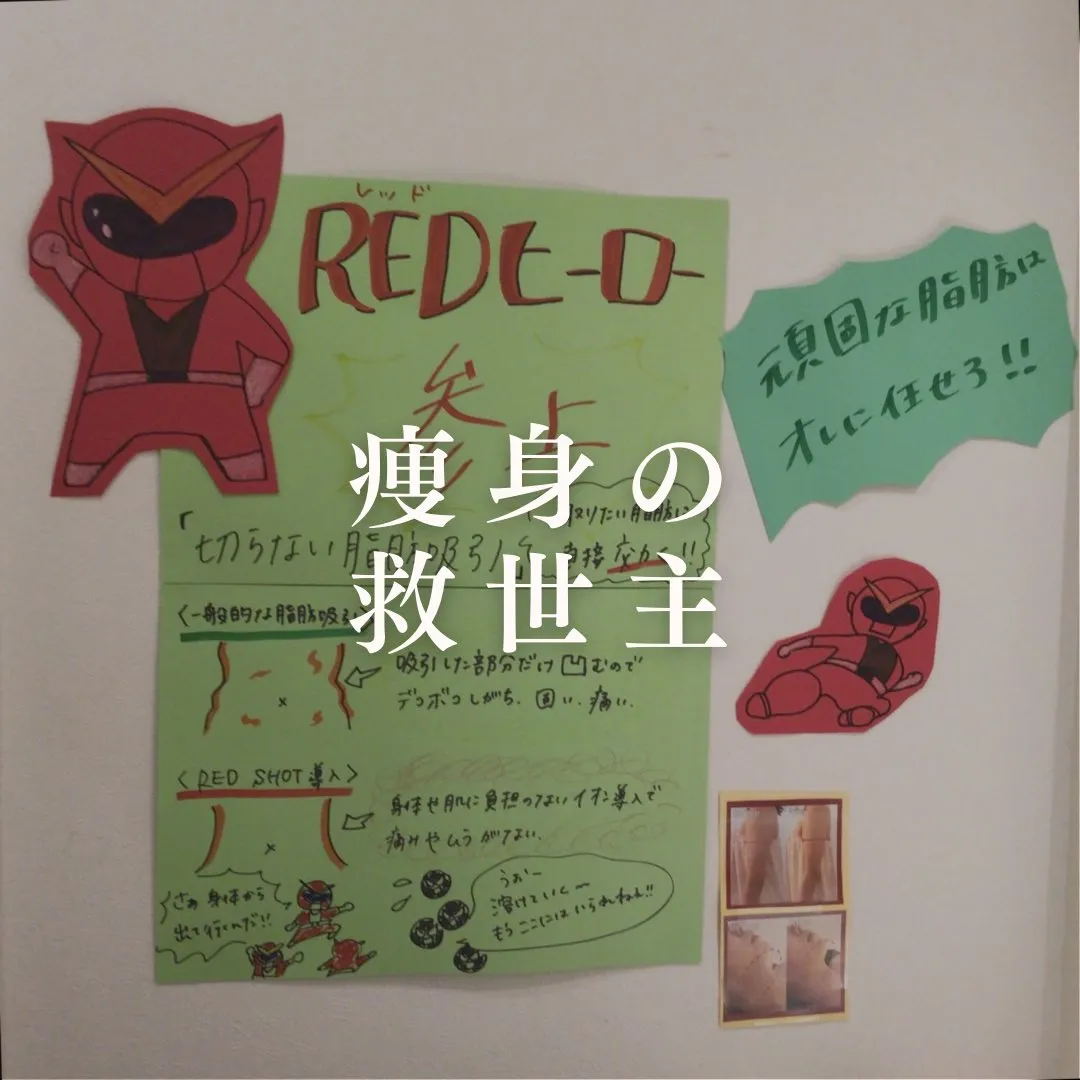 レッド
REDヒーロー
参上
頑固な脂肪は
オレに任せろ!!
痩身の
救世主
「切らない脂肪吸引」
取りたい脂肪に
直接
〈一般的な脂肪吸引〉
吸引した部分だけ凹むので
デコボコしがち、固い、痛い、
〈RED SHOT導入〉
身体や肌に負担のないイオン導入で
痛みやムラがない、
さぁ 身体から
出て行くんだ!!
うぉー
溶けていく〜
もうここにはいられねぇ!!